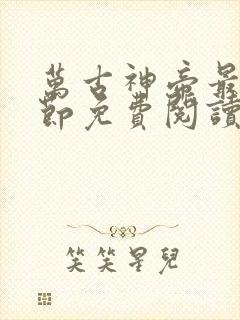 萬古神帝最
節免費閱讀
笑笑星兒